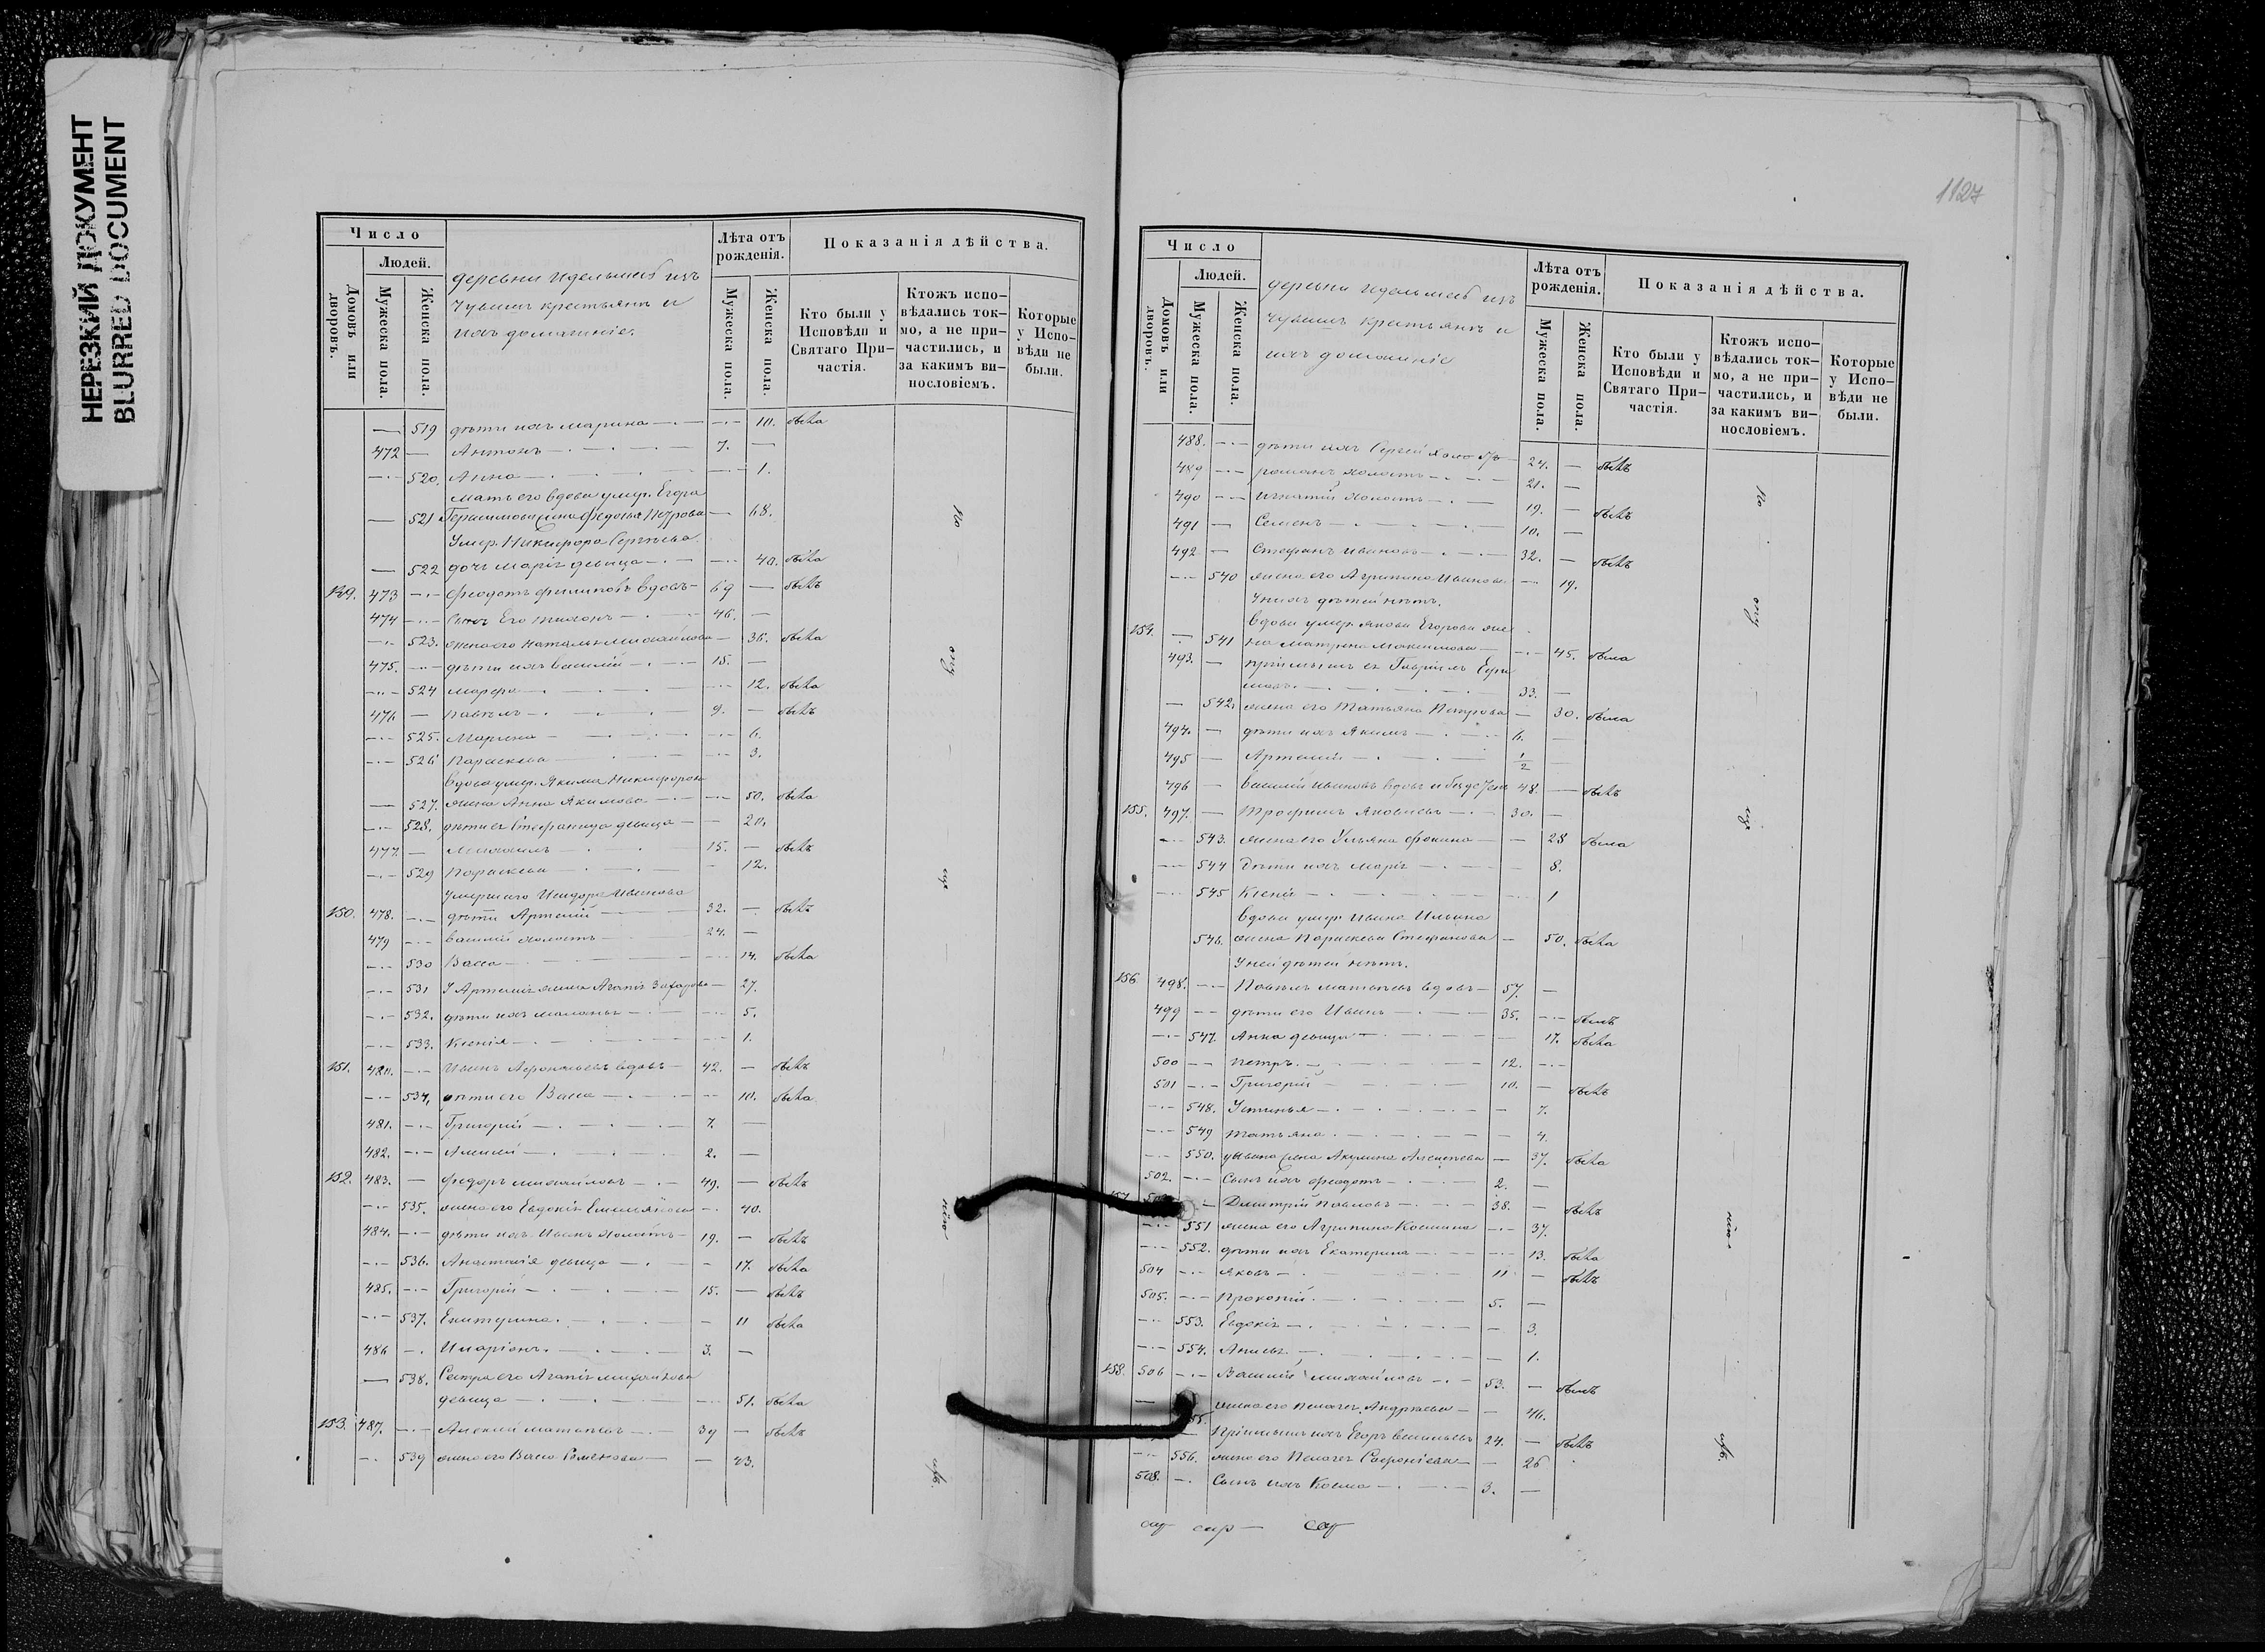 НЕРЕЗКИЙ ДОКУМЕНТ
BLURRED DOCUMENT
Число
Людей.
Домовъ или дворовъ.
Мужеска пола.
Женска пола.
деревни изъ
Чувашъ крестьянъ и
ихъ домашніе.
Лѣта отъ рожденія.
Мужеска пола.
Женска пола.
Показанія дѣйства.
Кто были у Исповѣди и Святаго При-частія.
Ктожъ испо-вѣдались ток-мо, а не при-частились, и за какимъ ви-нословіемъ.
Которые у Испо-вѣди не были.
— 519 дѣти ихъ Марина — 10. была
472 — Антонъ — 7. —
— 520. Анна — 1.
мать его вдова умер. Егора
— 521 Герасимова жена Федосья Петрова — 68.
Умер. Никифора Сергѣева
— 522 дочь Марія девица — 40. была
149. 473 — Феодотъ Филиповъ вдовъ — 69 — былъ
474 — Сынъ Его Тихонъ — 46. —
— 523. жена его Наталья Михайлова — 36. была
475. — дѣти ихъ Василій — 15. —
— 524 Марфа — 12. была
476 — Павелъ — 9. — былъ
— 525. Марина — 6.
— 526 Параскева — 3.
вдова умер. Якима Никифорова
— 527. жена Анна Якимова — 50. была
— 528. дѣти ея Степанида девица — 20.
477. — Михаилъ — 15. — былъ
— 529 Параскева — 12.
Умершаго Исидора Иванова
150. 478. — дѣти Артемій — 32. — былъ
479 — Василій холостъ — 24. —
— 530 Васса — 14. была
— 531 У Артемія жена Агапія Захарова — 27.
— 532. дѣти ихъ Маланья — 5.
— 533. Ксенія — 1.
151. 480. — Иванъ Афонасьевъ вдовъ — 42. — былъ
— 534. дѣти его Васса — 10. была
481. — Григорій — 7. —
482. — Алексѣй — 2. —
152. 483. — Федоръ Михайловъ — 49. — былъ
— 535. жена его Евдокія Емельянова — 40.
484. — дѣти ихъ Иванъ холостъ — 19. — былъ
— 536. Анастасія девица — 17. была
485. — Григорій — 15. — былъ
— 537. Екатерина — 11 была
486 — Иларіонъ. — 3. —
— 538. Сестра его Агапія Михайлова
девица — 51. была
153. 487. — Алексѣй Матвѣевъ — 39 — былъ
— 539 жена его Васса Семенова — 43.
1127
Число
Людей.
Домовъ или дворовъ.
Мужеска пола.
Женска пола.
деревни изъ
Чувашъ крестьянъ и
ихъ домашніе
Лѣта отъ рожденія.
Мужеска пола.
Женска пола.
Показанія дѣйства.
Кто были у Исповѣди и Святаго При-частія.
Ктожъ испо-вѣдались ток-мо, а не при-частились, и за какимъ ви-нословіемъ.
Которые у Испо-вѣди не были.
488. — дѣти ихъ Сергѣй холостъ 24. — былъ
489 — Романъ холостъ — 21. —
490 — Игнатій холостъ — 19. — былъ
491 — Семенъ — 10. —
492 — Стефанъ Ивановъ — 32. — былъ
— 540 жена его Агрипина Иванова — 19.
У нихъ дѣтей нѣтъ.
154. вдова умер. Якова Егорова же-
— 541 на Матрена Максимова — 45. была
493. — Пріимышъ ея Гавріилъ Ефи-
мовъ. — 33. —
— 542. жена его Татьяна Петрова — 30. была
494. — дѣти ихъ Якимъ — 6. —
495 — Артемій — 1/2 —
496 — Василій Ивановъ вдовъ и бездетенъ 48. — былъ
155. 497. — Трофимъ Яковлевъ — 30. —
— 543. жена его Ульяна Фокина — 28 была
— 544 Дѣти ихъ Марія — 8.
— 545 Ксенія — 1
вдова умер. Ивана Ильина
546. жена Параскева Стефанова — 50. была
У ней дѣтей нѣтъ.
156 498. — Павелъ Матвѣевъ вдовъ — 57. —
499 — дѣти его Иванъ — 35. — былъ
— 547. Анна девица — 17. была
500 — Петръ. — 12. —
501 — Григорій — 10. — былъ
— 548. Устинья — 7.
— 549 Татьяна. — 4.
— 550. у Ивана жена Акулина Алексѣева — 37. была
502. — Сынъ ихъ Феодотъ — 2. —
157 — Димитрій Павловъ — 38. — былъ
— 551 жена его Агрипина Космина — 37.
— 552. дѣти ихъ Екатерина — 13. была
504 — Яковъ — 11 — былъ
505. — Прокопій. — 5. —
— 553. Евдокія — 3.
— 554. — 1.
158. 506 — Василій Михайловъ — 53. — былъ
— жена его Пелагея Андреева — 46.
Пріимышъ ихъ Егоръ Васильевъ 24. — былъ
— 556. жена его Пелагея Софроніева — 26
508. — Сынъ ихъ Косма — 3. —